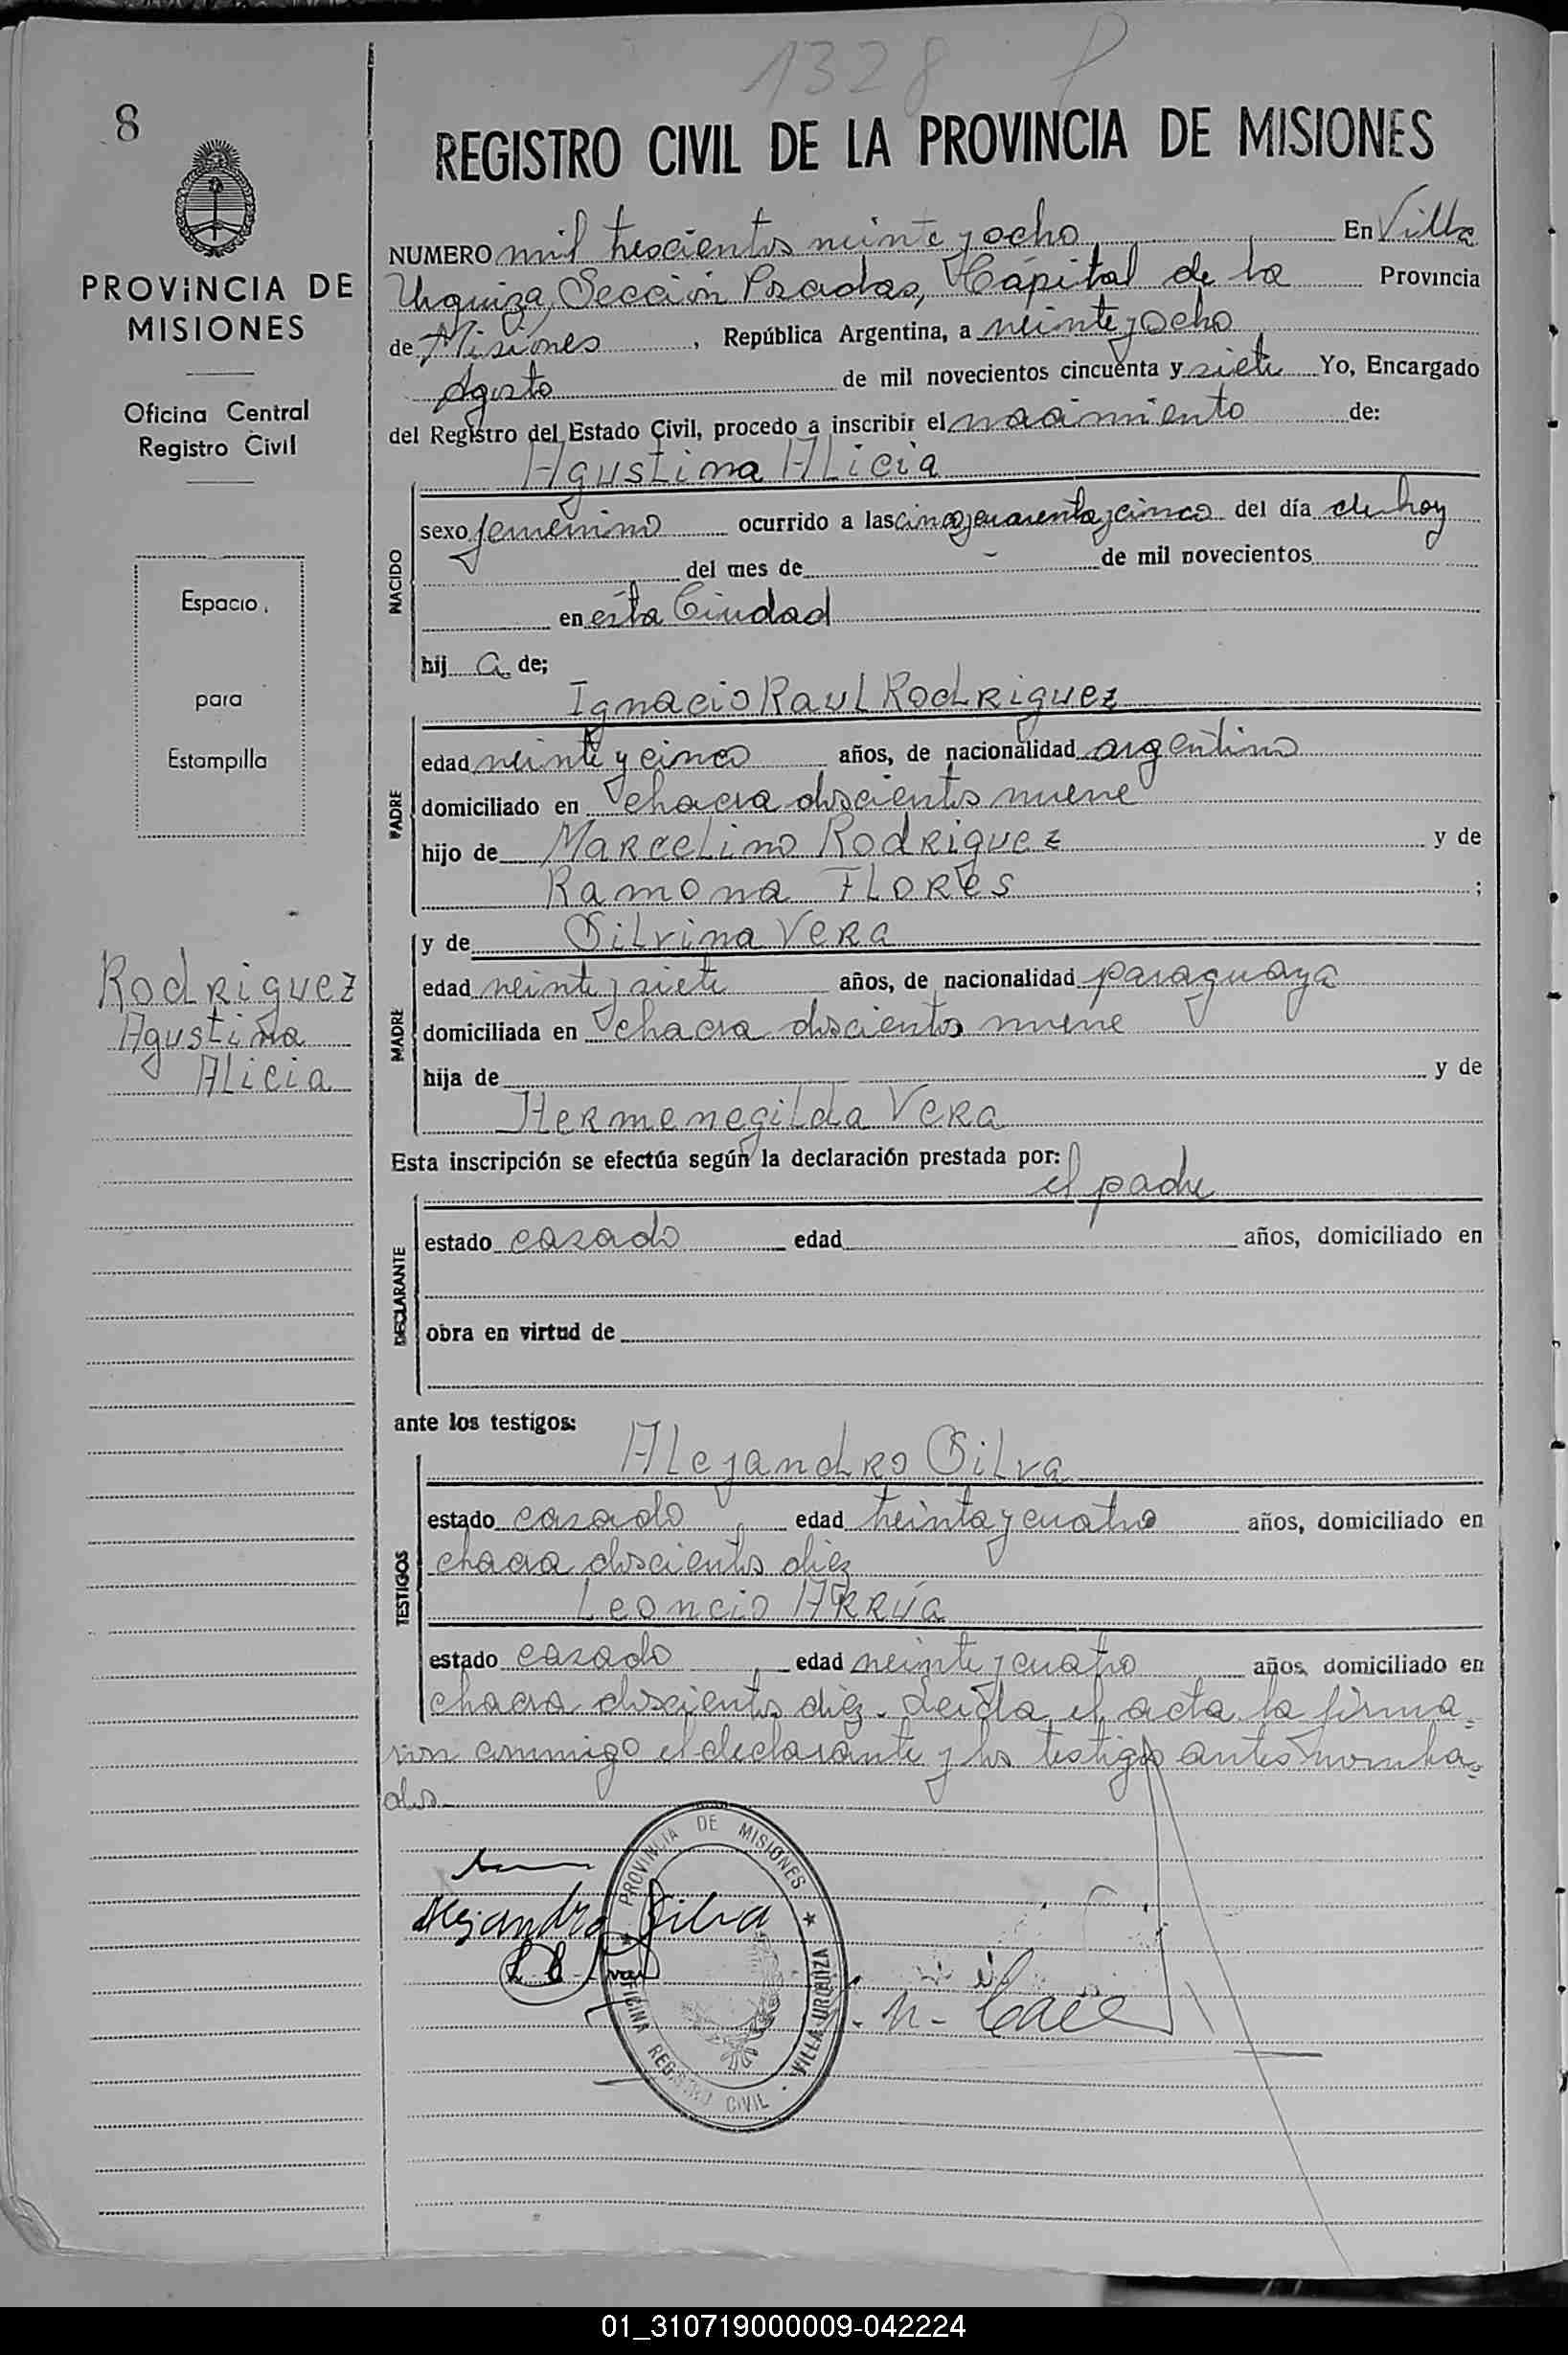 1328
8
REGISTRO CIVIL DE LA PROVINCIA DE MISIONES
PROVINCIA DE
MISIONES
Oficina Central
Registro Civil
Espacio
para
Estampilla
Rodriguez
Agustina
Alicia
NUMERO mil trescientos veinte y ocho En Villa
Urquiza, Sección Posadas, Capital de la Provincia
de Misiones, República Argentina, a veinte y ocho
Agosto de mil novecientos cincuenta y siete Yo, Encargado
del Registro del Estado Civil, procedo a inscribir el nacimiento de:
Agustina Alicia
NACIDO
sexo femenino ocurrido a las cinco y cuarenta y cinco del día de hoy
del mes de - de mil novecientos
en ésta Ciudad
hij a de;
Ignacio Raul Rodriguez
PADRE
edad veinte y cinco años, de nacionalidad argentino
domiciliado en chacra doscientos nueve
hijo de Marcelino Rodriguez y de
Ramona Flores ;
MADRE
y de Silvina Vera
edad veinte y siete años, de nacionalidad paraguaya
domiciliada en chacra doscientos nueve
hija de y de
Hermenegilda Vera
Esta inscripción se efectúa según la declaración prestada por:
el padre
DECLARANTE
estado casado edad años, domiciliado en
obra en virtud de
ante los testigos:
Alejandro Silva
TESTIGOS
estado casado edad treinta y cuatro años, domiciliado en
chacra doscientos diez
Leoncio Arrúa
estado casado edad veinte y cuatro años, domiciliado en
chacra doscientos diez. Leida el acta la firma=
ron conmigo el declarante y los testigos antes nombra=
dos.
Alejandro Silva
PROVINCIA DE MISIONES
OFICINA REGISTRO CIVIL - VILLA URQUIZA
01_310719000009-042224